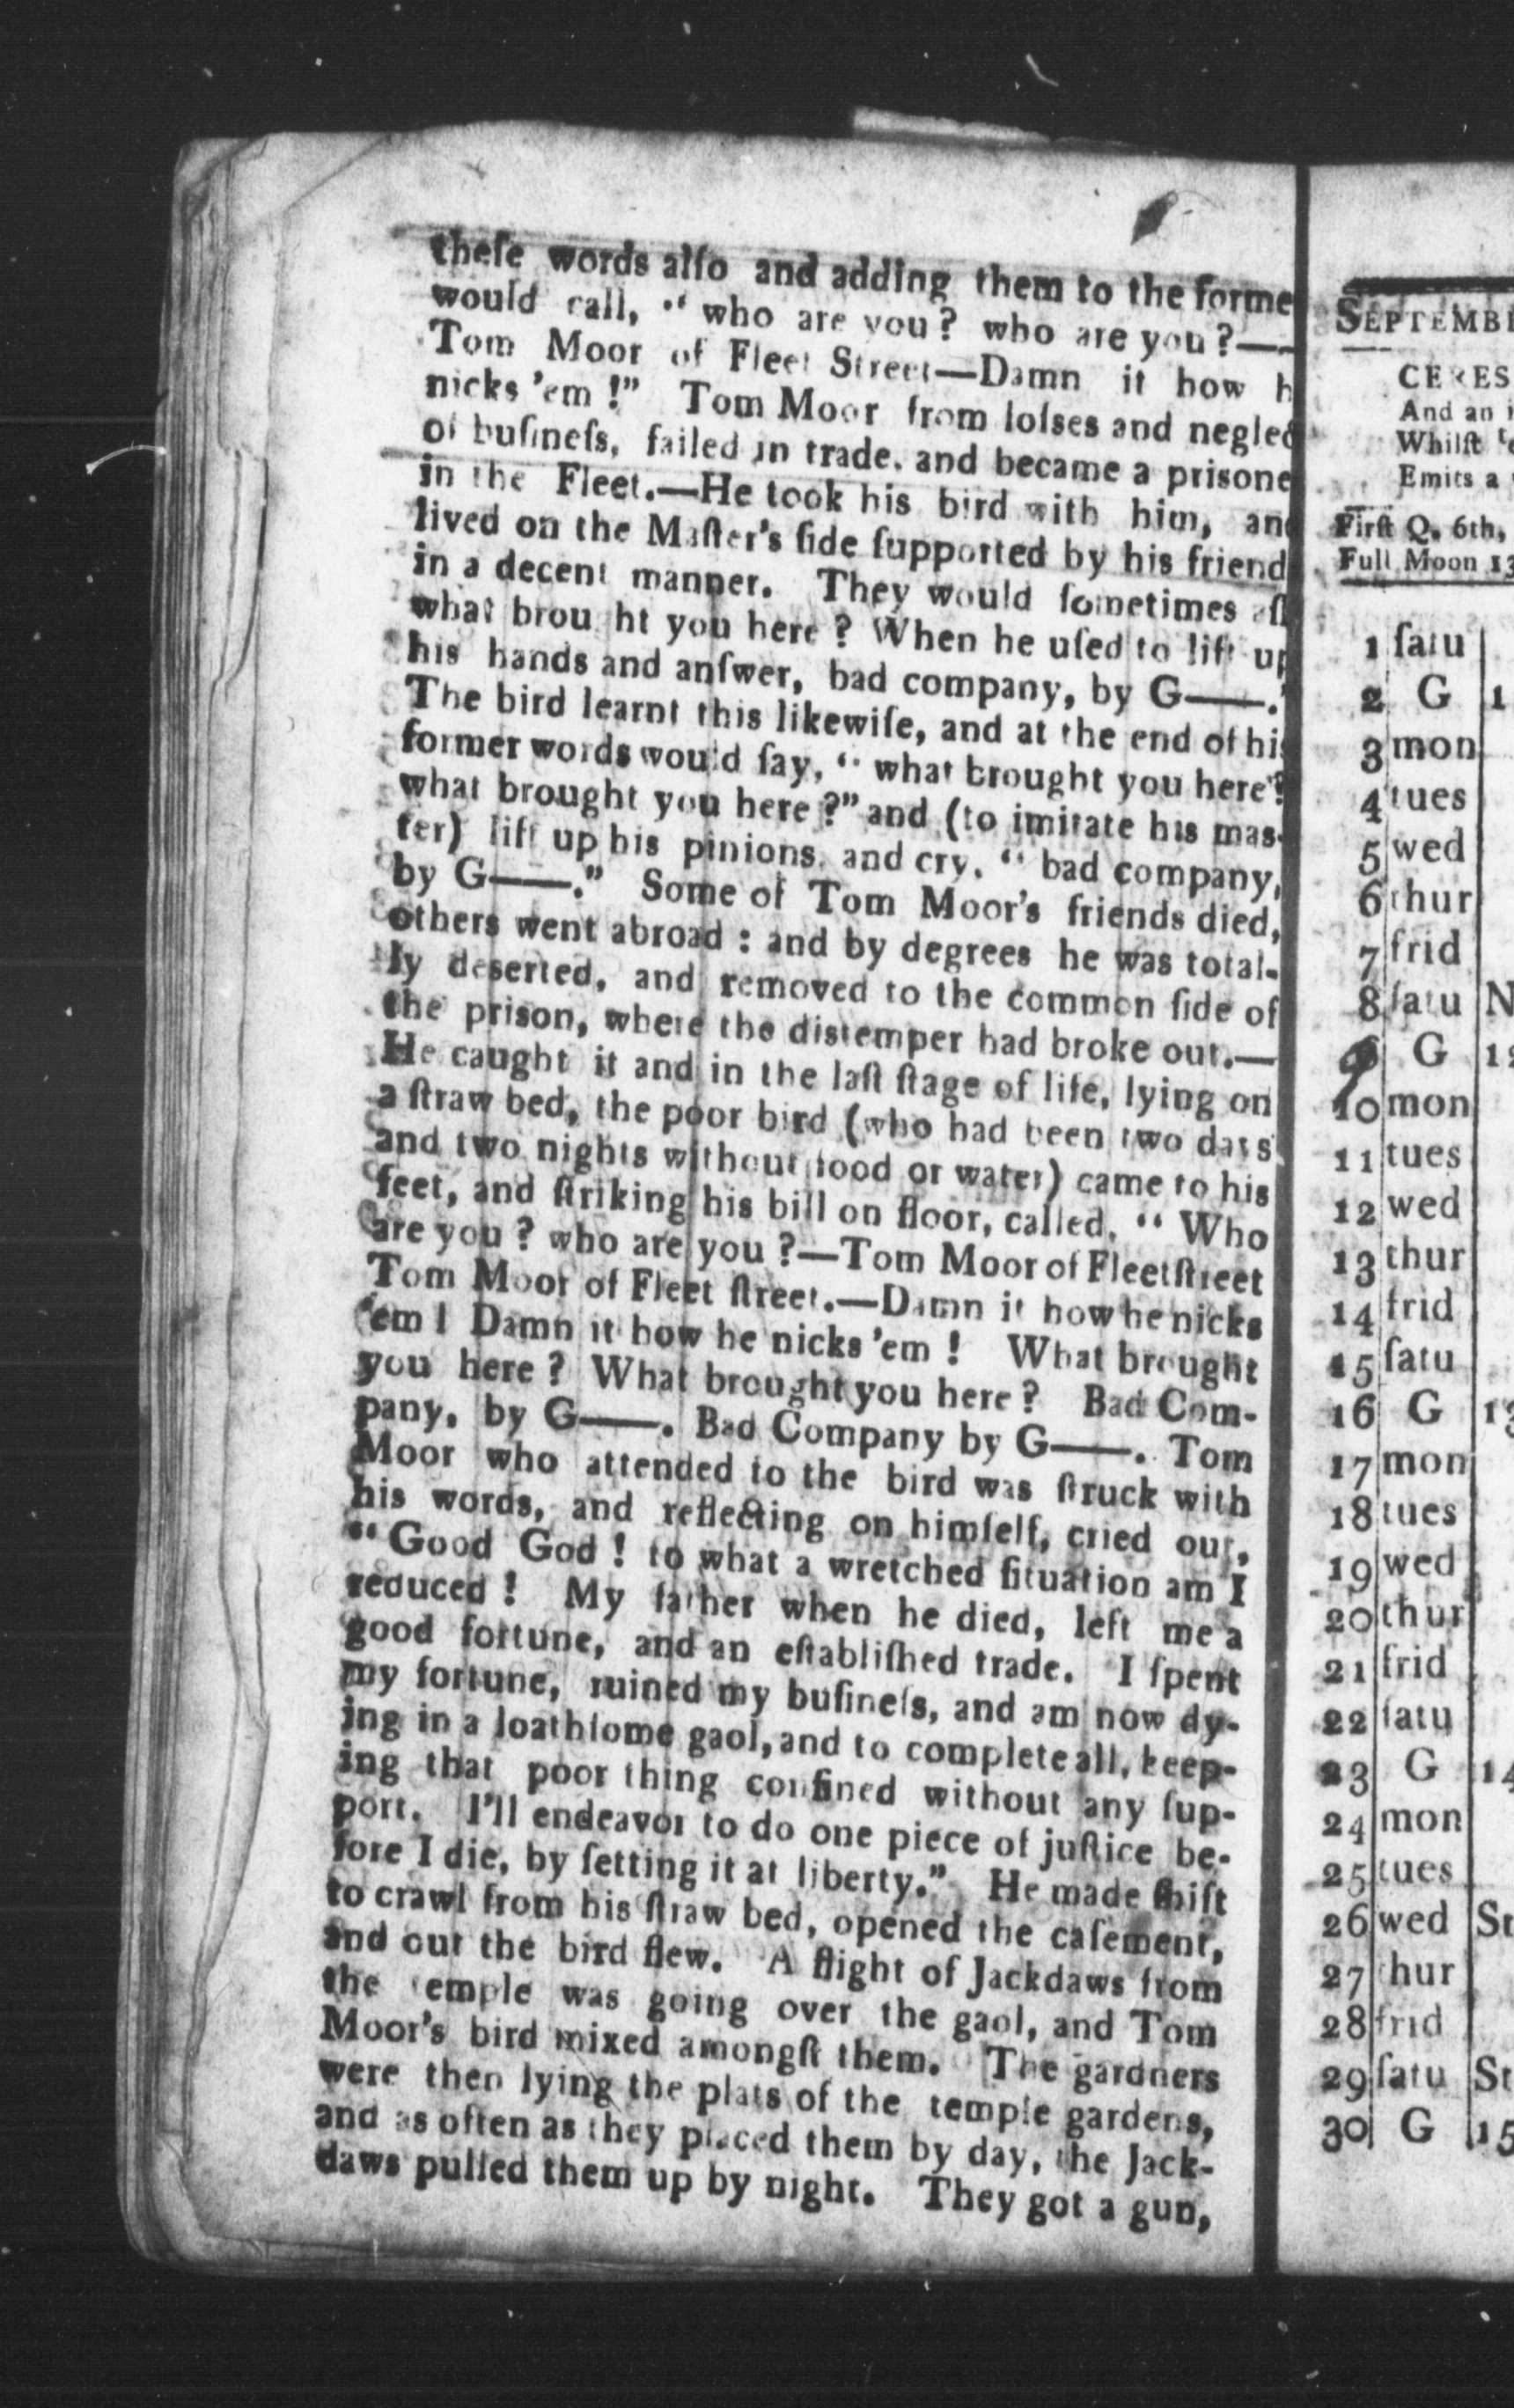 theſe words alſo and adding them to the forme
would call, “ who are you? who are you?——
Tom Moor of Fleet Street—Damn it how h
nicks ’em !” Tom Moor from loſses and neglec
of buſineſs, failed in trade. and became a prisone
in the Fleet.—He took his bird with him, and
lived on the Maſter’s ſide ſupported by his friend
in a decent manner. They would ſometimes aſk
what brou ht you here ? When he uſed to lift up
his hands and anſwer, bad company, by G——.”
The bird learnt this likewiſe, and at the end of his
former words would ſay, “ what brought you here?
what brought you here ?” and (to imitate his mas-
ter) lift up his pinions. and cry, “ bad company,
by G——.” Some of Tom Moor’s friends died,
others went abroad : and by degrees he was total-
ly deserted, and removed to the common ſide of
the prison, where the distemper had broke out.—
He caught it and in the laſt ſtage of life, lying on
a ſtraw bed, the poor bird (who had been two days
and two nights without food or water) came to his
feet, and ſtriking his bill on floor, called, “ Who
are you ? who are you ?—Tom Moor of Fleetſtreet
Tom Moor of Fleet ſtreet.—Damn it how he nicks
’em ! Damn it how he nicks ’em ! What brought
you here ? What brought you here ? Bad Com-
pany, by G——. Bad Company by G——. Tom
Moor who attended to the bird was ſtruck with
his words, and reflecting on himſelf, cried out,
“ Good God ! to what a wretched ſituation am I
reduced ! My father when he died, left me a
good fortune, and an eſtabliſhed trade. I ſpent
my fortune, ruined my buſineſs, and am now dy-
ing in a loathſome gaol, and to complete all, keep-
ing that poor thing confined without any ſup-
port. I’ll endeavor to do one piece of juſtice be-
fore I die, by ſetting it at liberty.” He made ſhift
to crawl from his ſtraw bed, opened the caſement,
and out the bird flew. A flight of Jackdaws from
the temple was going over the gaol, and Tom
Moor’s bird mixed amongſt them. The gardners
were then lying the plats of the temple gardens,
and as often as they placed them by day, the Jack-
daws pulled them up by night. They got a gun,
SEPTEMBE
CERES
And an i
Whilſt
Emits a
Firſt Q. 6th,
Full Moon 13
1 ſatu
2 G 1
3 mon
4 tues
5 wed
6 thur
7 frid
8 ſatu N
9 G 12
10 mon
11 tues
12 wed
13 thur
14 frid
15 ſatu
16 G 13
17 mon
18 tues
19 wed
20 thur
21 frid
22 ſatu
23 G 14
24 mon
25 tues
26 wed St
27 thur
28 frid
29 ſatu St
30 G 15